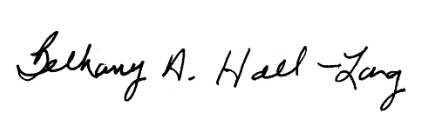 Bethany A. Hall-Long